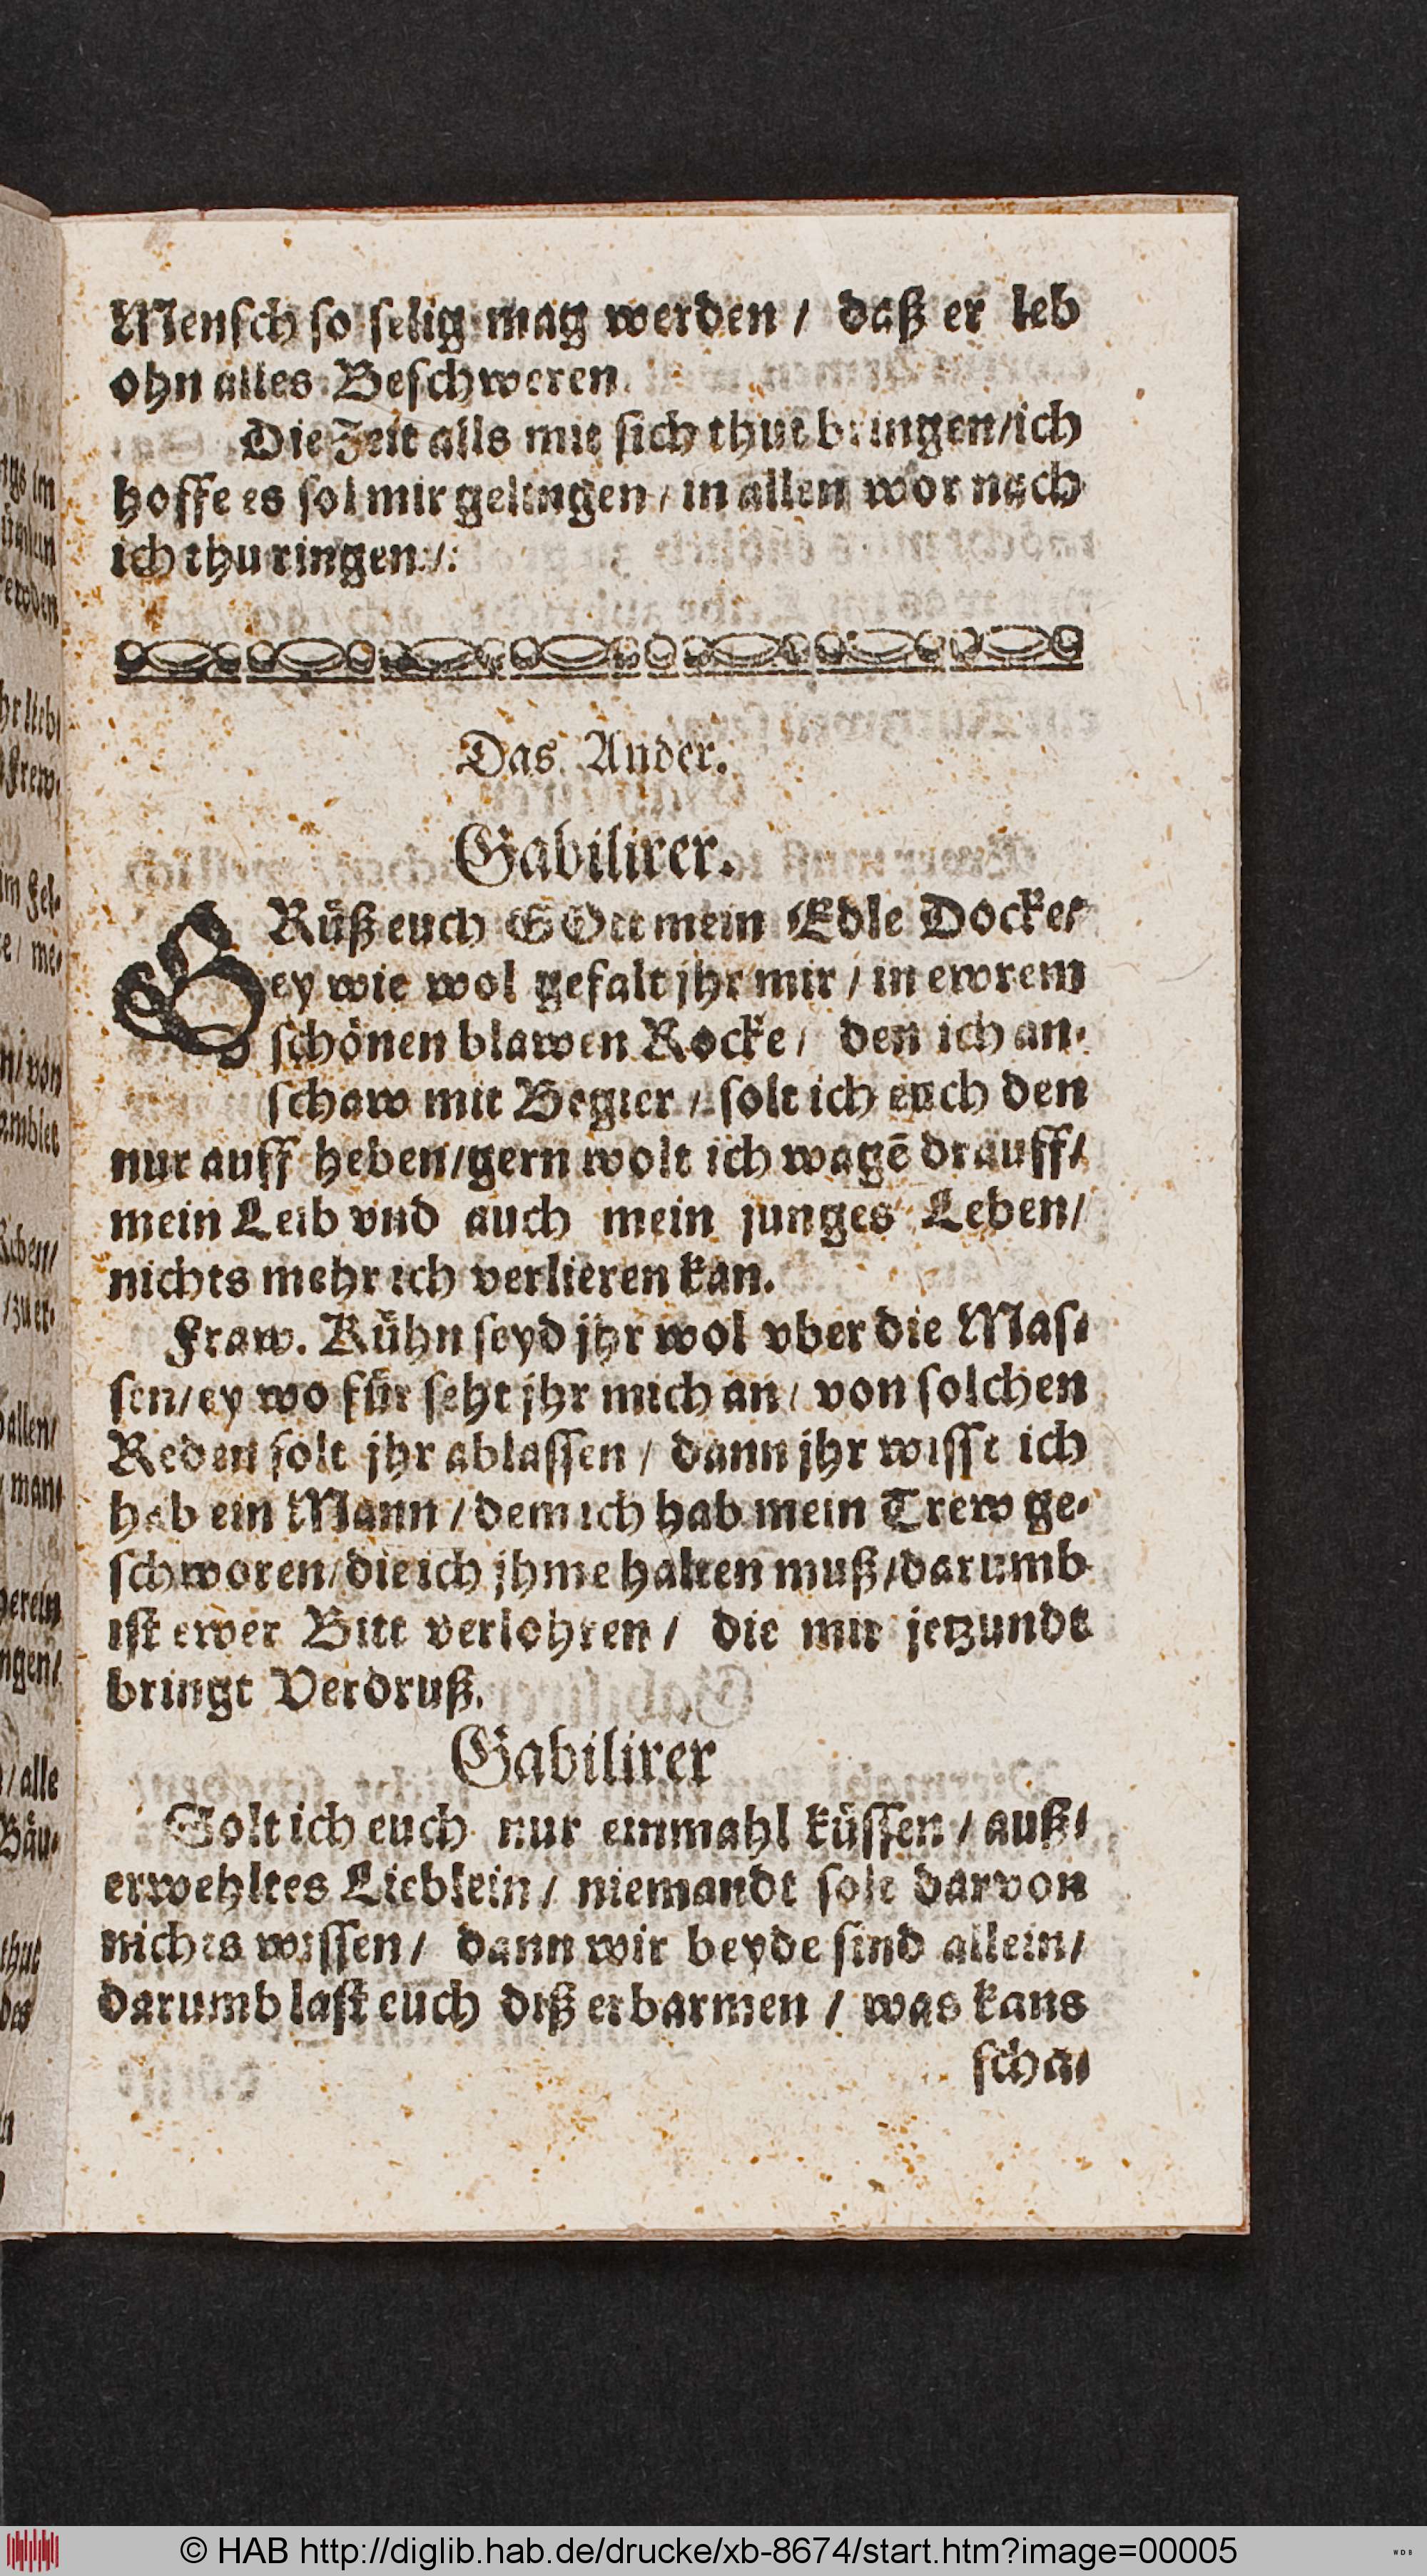 Mensch so selig mag werden / daß er leb
ohn alles Beschweren.
Die Zeit alls mit sich thut bringen/ich
hoffe es sol mir gelingen / in allen wor nach
ich thu ringen /:
Das Ander.
Gabilirer.
GRüß euch GOtt mein Edle Docke/
ey wie wol gefalt jhr mir / in ewrem
schönen blawen Rocke / den ich an-
schaw mit Begier / solt ich euch den
nur auff heben/gern wolt ich wagē drauff/
mein Leib vnd auch mein junges Leben/
nichts mehr ich verlieren kan.
Fraw. Kühn seyd jhr wol vber die Mas-
sen/ey wo für seht jhr mich an / von solchen
Reden solt jhr ablassen / dann jhr wisst ich
hab ein Mann / dem ich hab mein Trew ge-
schworen/die ich jhme halten muß/darumb
ist ewer Bitt verlohren / die mir jetzundt
bringt Verdruß.
Gabilirer
Solt ich euch nur einmahl küssen / auß-
erwehltes Lieblein / niemandt solt darvon
nichts wissen / dann wir beyde sind allein/
darumb last euch diß erbarmen / was kans
scha-
© HAB http://diglib.hab.de/drucke/xb-8674/start.htm?image=00005